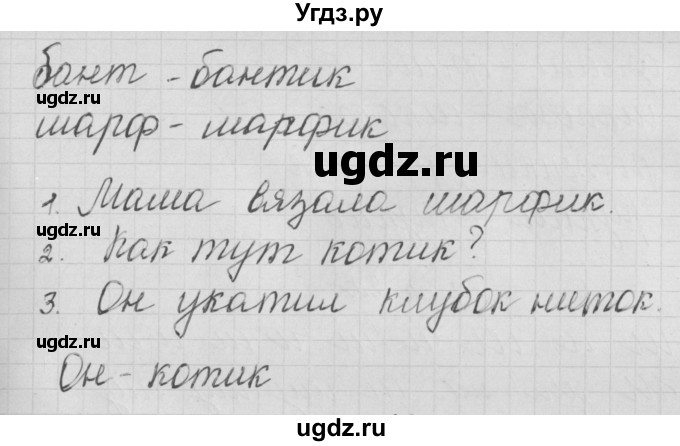 Угдз.ру
бант - бантик
ugdz.ru
ugdz.ru
шарф - шарфик
ugdz.ru
1. Мама вязала шарфик.
2. Как тут котик?
ugdz.ru
ugdz.ru
3. Он укатил клубок ниток.
Он - котик
ugdz.ru
ugdz.ru